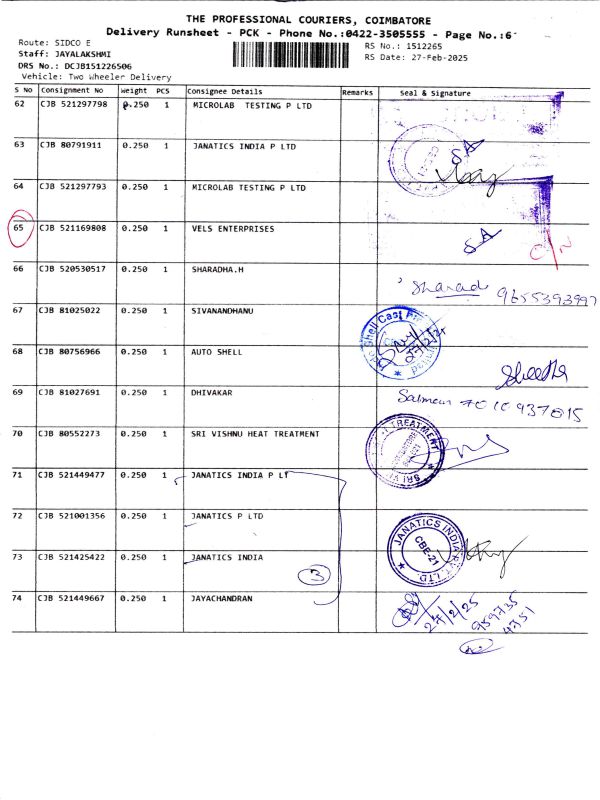 THE PROFESSIONAL COURIERS, COIMBATORE
Delivery Runsheet - PCK - Phone No.:0422-3505555 - Page No.:6
Route: SIDCO E
RS No.: 1512265
Staff: JAYALAKSHMI
RS Date: 27-Feb-2025
DRS No.: DCJB151226506
Vehicle: Two Wheeler Delivery
S No Consignment No Weight PCS Consignee Details Remarks Seal & Signature
62 CJB 521297798 0.250 1 MICROLAB TESTING P LTD
63 CJB 80791911 0.250 1 JANATICS INDIA P LTD
64 CJB 521297793 0.250 1 MICROLAB TESTING P LTD
65 CJB 521169808 0.250 1 VELS ENTERPRISES
66 CJB 520530517 0.250 1 SHARADHA.H
Sharad 9655393997
67 CJB 81025022 0.250 1 SIVANANDHANU
68 CJB 80756966 0.250 1 AUTO SHELL
69 CJB 81027691 0.250 1 DHIVAKAR
Salman 7010937815
70 CJB 80552273 0.250 1 SRI VISHNU HEAT TREATMENT
71 CJB 521449477 0.250 1 JANATICS INDIA P LT
72 CJB 521001356 0.250 1 JANATICS P LTD
JANATICS INDIA PVT LTD
CBE-21
73 CJB 521425422 0.250 1 JANATICS INDIA
3
74 CJB 521449667 0.250 1 JAYACHANDRAN
27/2/25
959735
4751